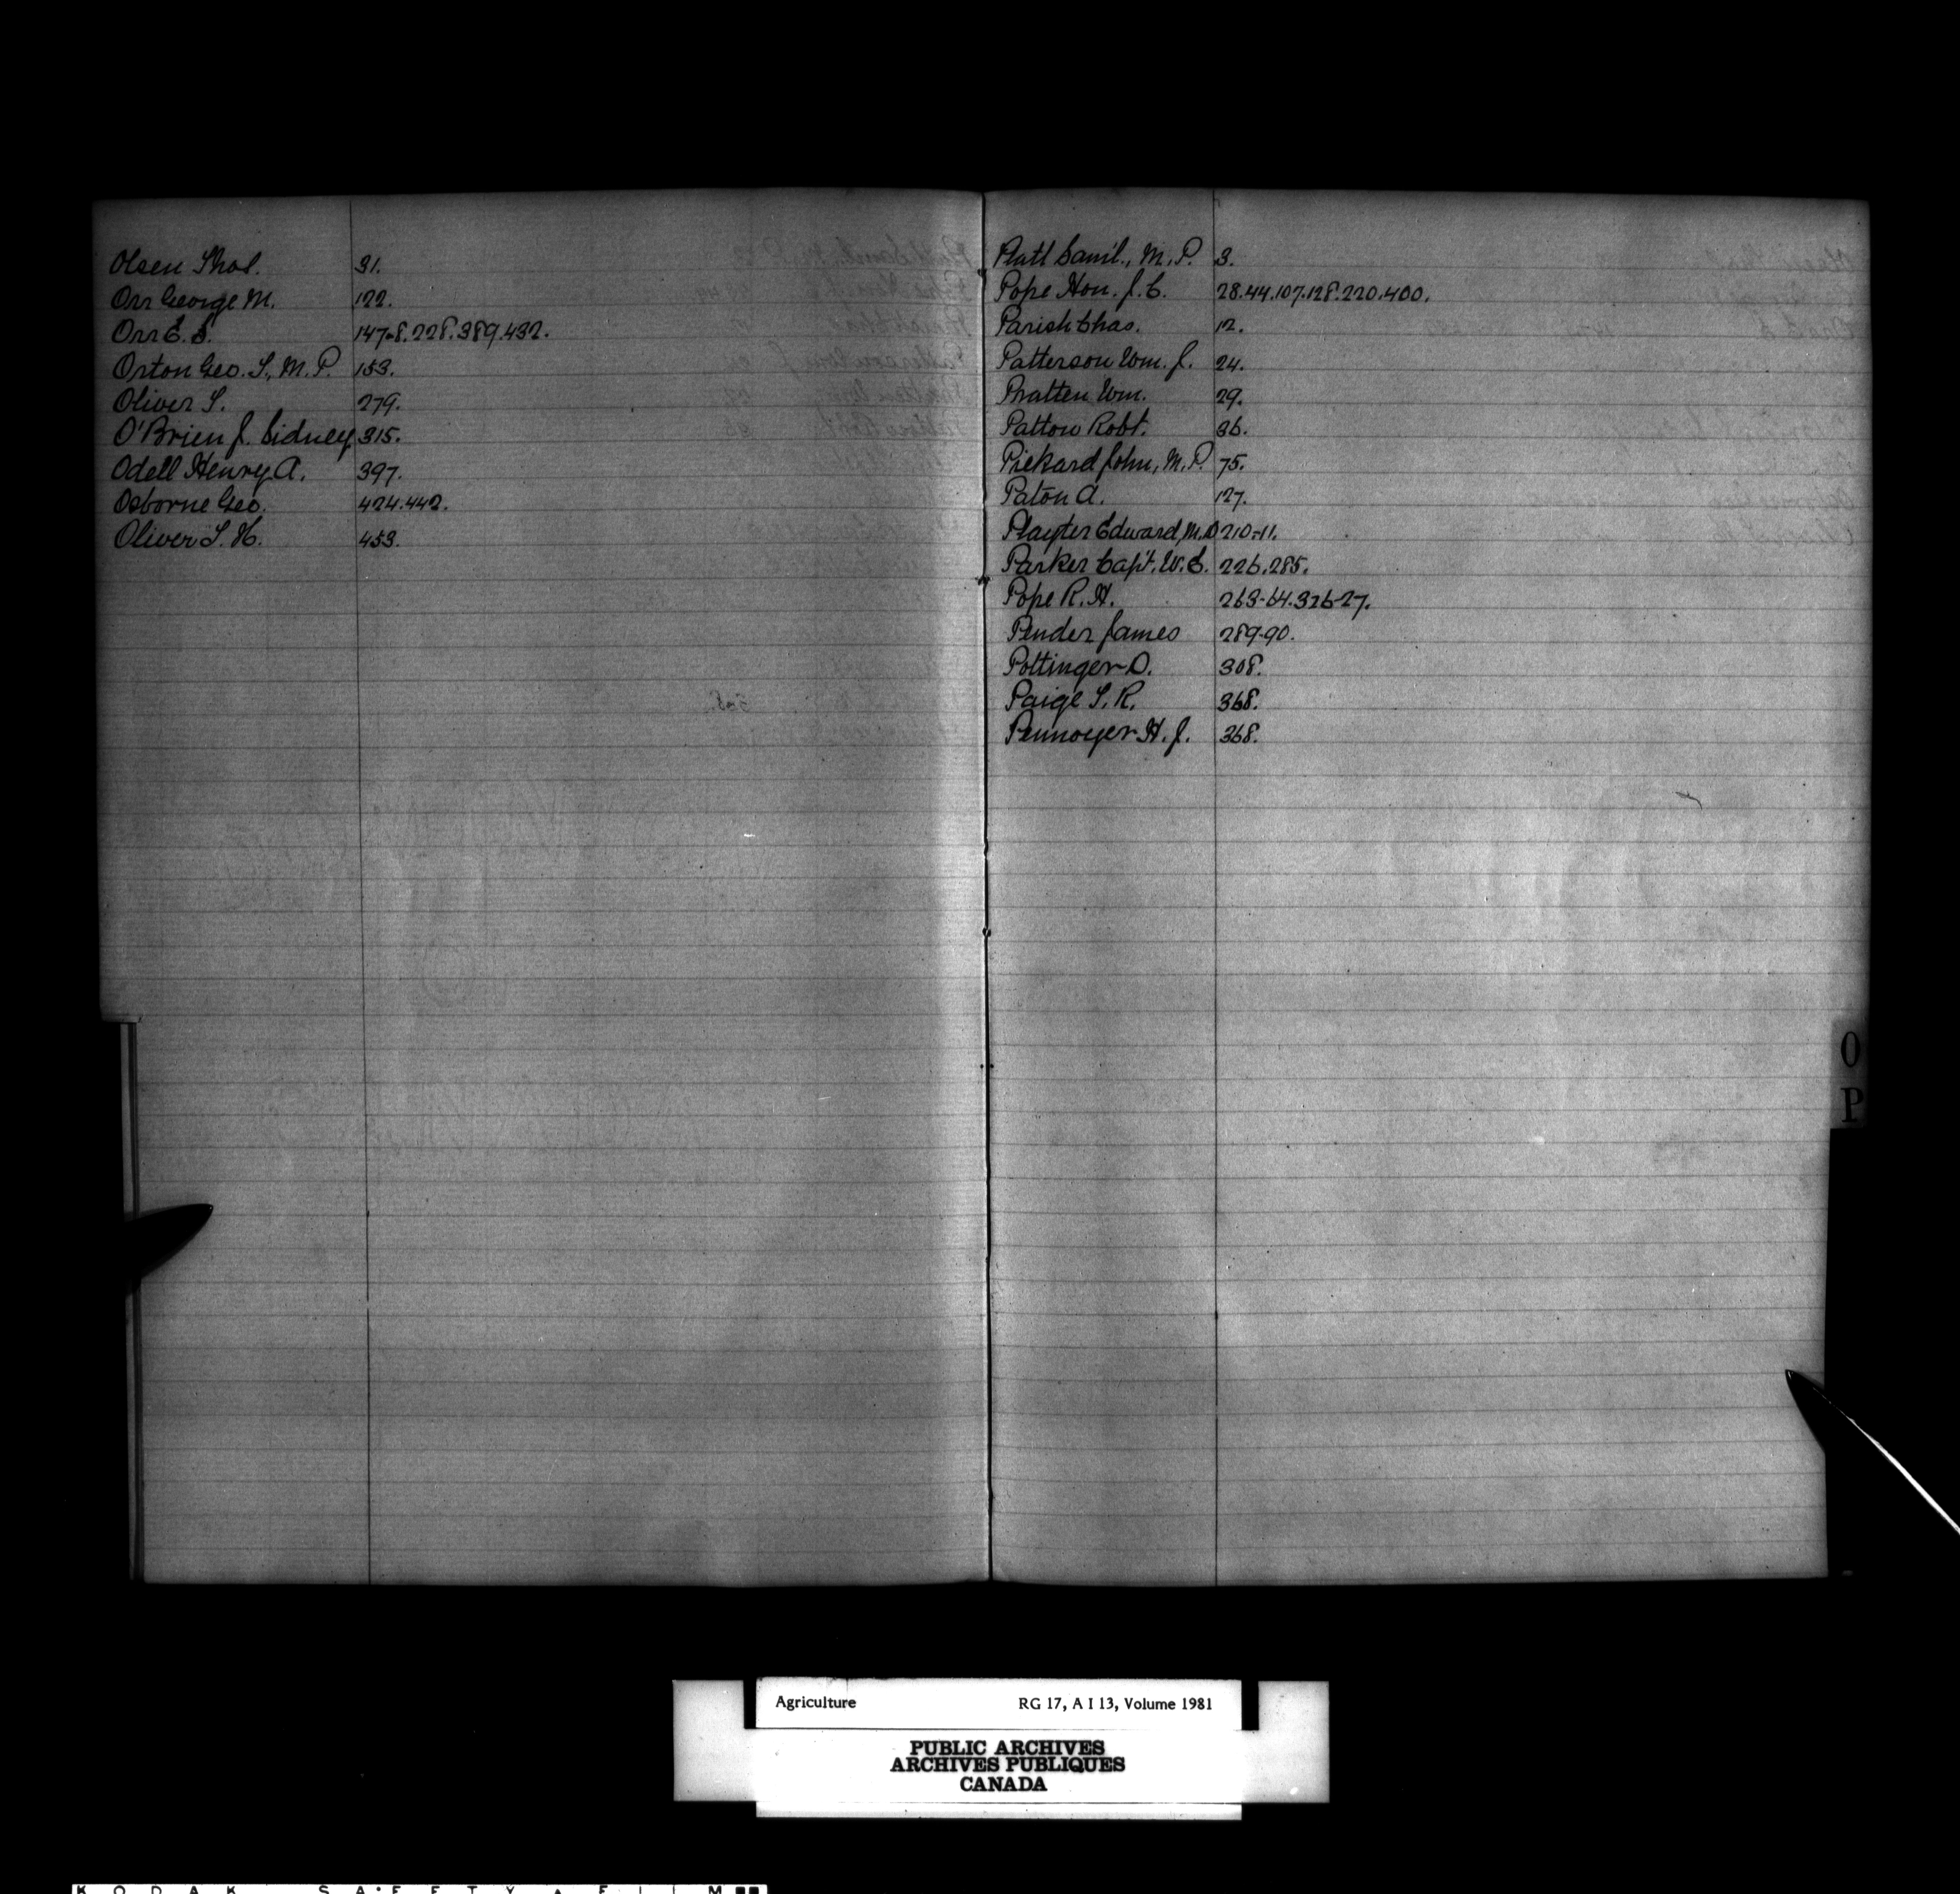 Olsen Thos. 31.
Orr George M. 122.
Orr E. S. 147-8.228.389.432.
Orton Geo. T., M.P. 153.
Oliver T. 279.
O'Brien J. Sidney 315.
Odell Henry A. 397.
Osborne Geo. 424.442.
Oliver T. H. 453.
Platt Saml., M.P. 3.
Pope Hon. J. C. 28.44.107.128.220.400.
Parish Chas. 12.
Patterson Wm. J. 24.
Pratten Wm. 29.
Patton Robt. 36.
Pickard John, M.P. 75.
Paton A. 127.
Playter Edward, M.D 210-11.
Parker Capt. W. C. 226.285.
Pope R. H. 263-64.326-27.
Pender James 289-90.
Pottinger D. 308.
Paige T. R. 368.
Pennoyer H. J. 368.
O
P
Agriculture RG 17, A I 13, Volume 1981
PUBLIC ARCHIVES
ARCHIVES PUBLIQUES
CANADA
KODAK SAFETY FILM